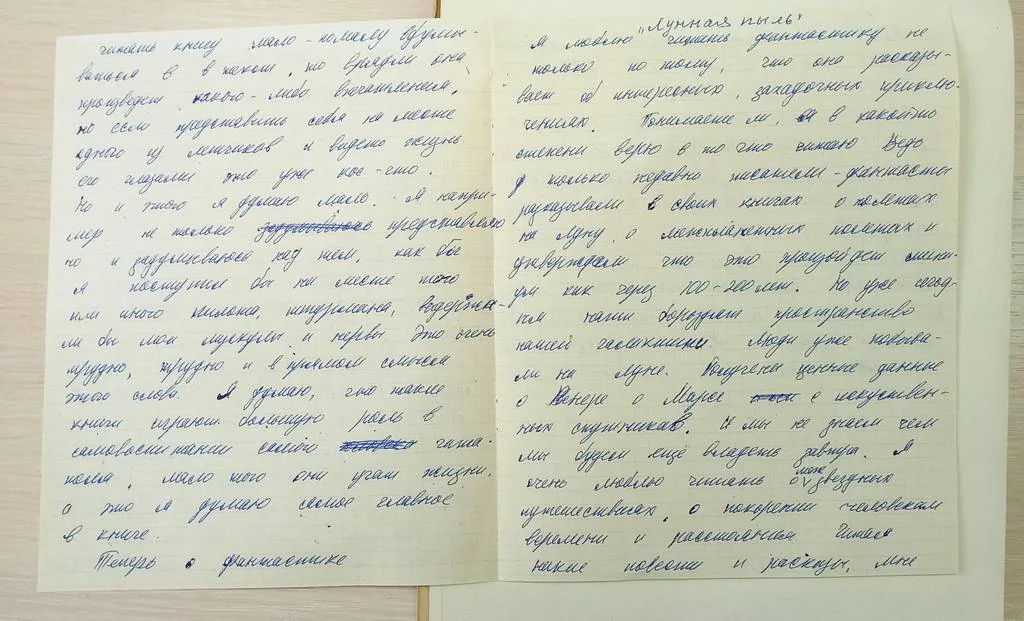 читать книгу мало-помалу вдумы-
ваться в в неком, то врядли она
произведет какого-либо впечатления,
но если представить себя на месте
одного из летчиков и видеть жизнь
его глазами это уже кое-что.
Но и этого я думаю мало. Я напри-
мер не только представляю
но и задумываюсь над тем, как бы
я поступил бы на месте того
или иного пилота, штурмана, выдержа-
ли бы мои мускулы и нервы Это очень
трудно, трудно и в прямом смысле
этого слова. Я думаю, что такие
книги играют большую роль в
самовоспитании самого чита-
теля, мало того они учат жизни.
а это я думаю самое главное
в книге.
Теперь о фантастике
"Лунная пыль"
Я люблю читать фантастику не
только по тому, что она расказы-
вает об интересных, загадочных приклю-
чениях. Понимаете ли, я в какой то
степени верю в то что читаю Ведь
только недавно писатели-фантасты
разказывали в своих книгах о полетах
на луну, о межпланетных полетах и
утверждали что это произойдет мини-
ум как через 100-200 лет. Но уже сегод-
ня наши бороздят пространство
нашей галактики. Люди уже побыва-
ли на луне. Получены ценные данные
о Венере о Марсе с искуствен-
ных спутников. И мы не знаем чем
мы будем ещё владеть завтра. Я
очень люблю читать о звездных
путешествиях, о покорении человеком
времени и расстояния Читая
такие повести и расказы, мне